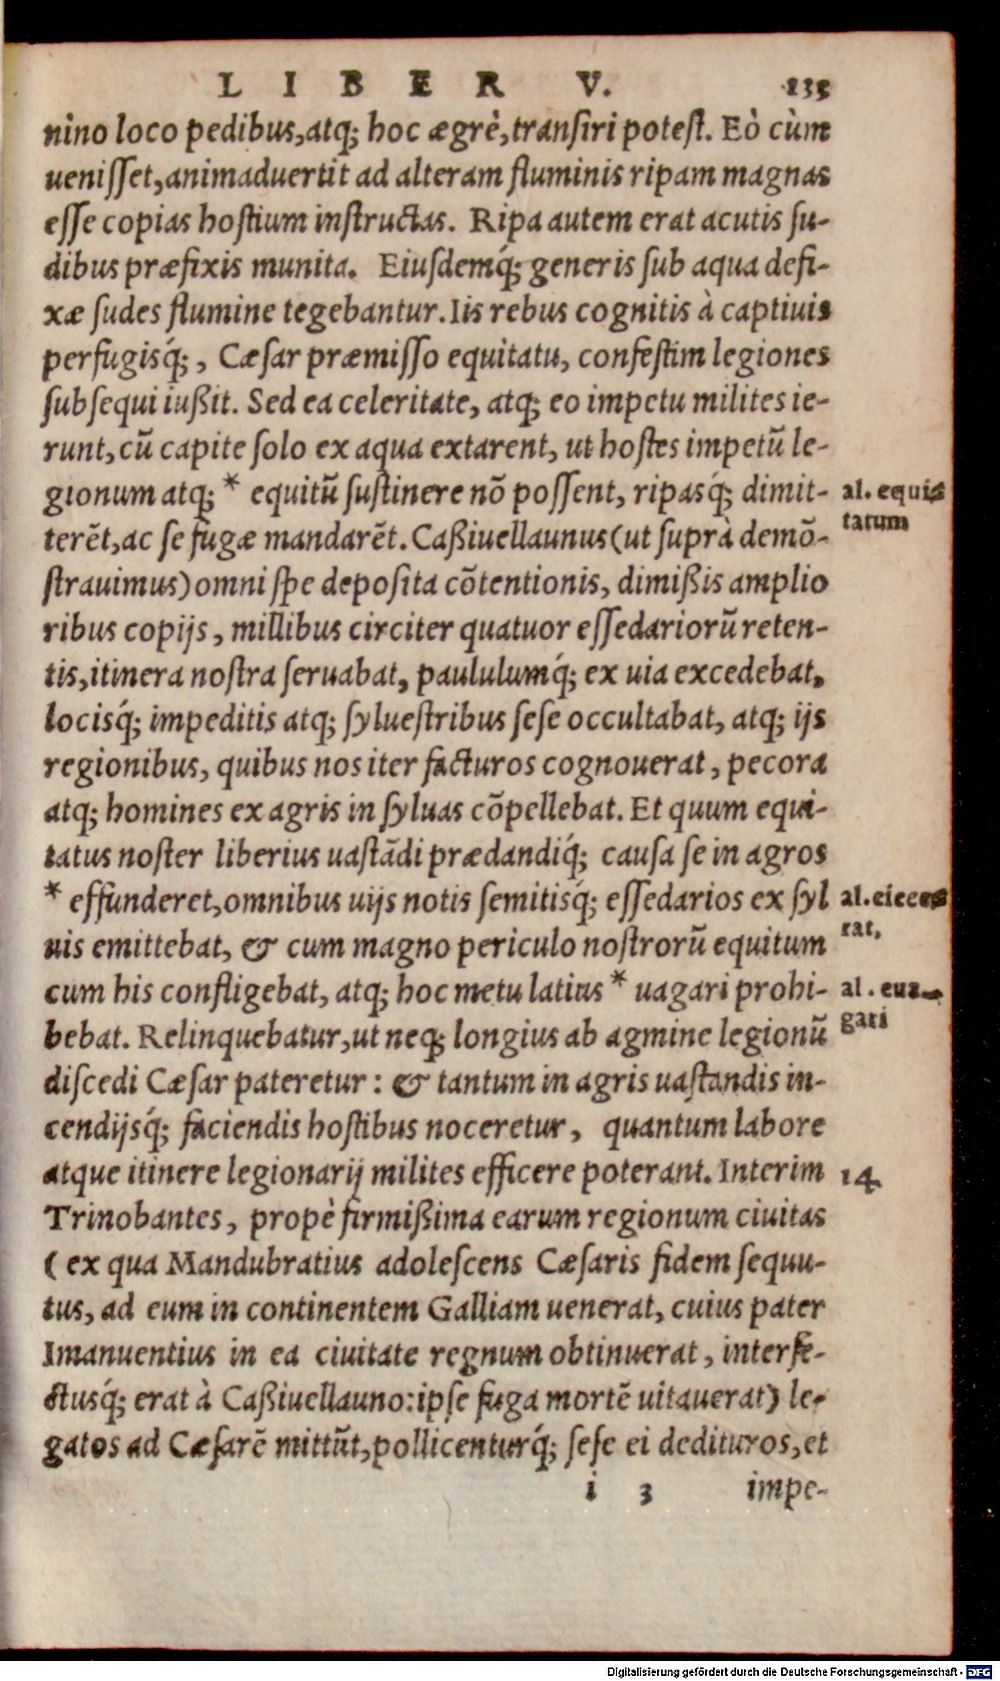 LIBER V. 135
nino loco pedibus, atq; hoc ægrè, transiri potest. Eò cùm
uenisset, animaduertit ad alteram fluminis ripam magnas
esse copias hostium instructas. Ripa autem erat acutis su-
dibus præfixis munita. Eiusdemq́; generis sub aqua defi-
xæ sudes flumine tegebantur. Iis rebus cognitis à captiuis
perfugisq́;, Cæsar præmisso equitatu, confestim legiones
subsequi iußit. Sed ea celeritate, atq; eo impetu milites ie-
runt, cũ capite solo ex aqua extarent, ut hostes impetũ le-
gionum atq; * equitũ sustinere nõ possent, ripasq́; dimit-
al. equi
tatum
terẽt, ac se fugæ mandarẽt. Caßiuellaunus (ut suprà demõ-
strauimus) omni spe deposita cõtentionis, dimißis amplio
ribus copijs, millibus circiter quatuor essedariorũ reten-
tis, itinera nostra seruabat, paululumq́; ex uia excedebat,
locisq́; impeditis atq; syluestribus sese occultabat, atq; ijs
regionibus, quibus nos iter facturos cognouerat, pecora
atq; homines ex agris in syluas cõpellebat. Et quum equi-
tatus noster liberius uastãdi prædandiq́; causa se in agros
* effunderet, omnibus uijs notis semitisq́; essedarios ex syl
al. eiece
rat.
uis emittebat, & cum magno periculo nostrorũ equitum
cum his confligebat, atq; hoc metu latius * uagari prohi-
al. eua-
gari
bebat. Relinquebatur, ut neq; longius ab agmine legionũ
discedi Cæsar pateretur: & tantum in agris uastandis in-
cendijsq́; faciendis hostibus noceretur, quantum labore
atque itinere legionarij milites efficere poterant. Interim
14
Trinobantes, propè firmißima earum regionum ciuitas
(ex qua Mandubratius adolescens Cæsaris fidem sequu-
tus, ad eum in continentem Galliam uenerat, cuius pater
Imanuentius in ea ciuitate regnum obtinuerat, interfe-
ctusq́; erat à Caßiuellauno: ipse fuga mortẽ uitauerat) le-
gatos ad Cæsarẽ mittũt, pollicenturq́; sese ei dedituros, et
i 3 impe-
Digitalisierung gefördert durch die Deutsche Forschungsgemeinschaft - DFG